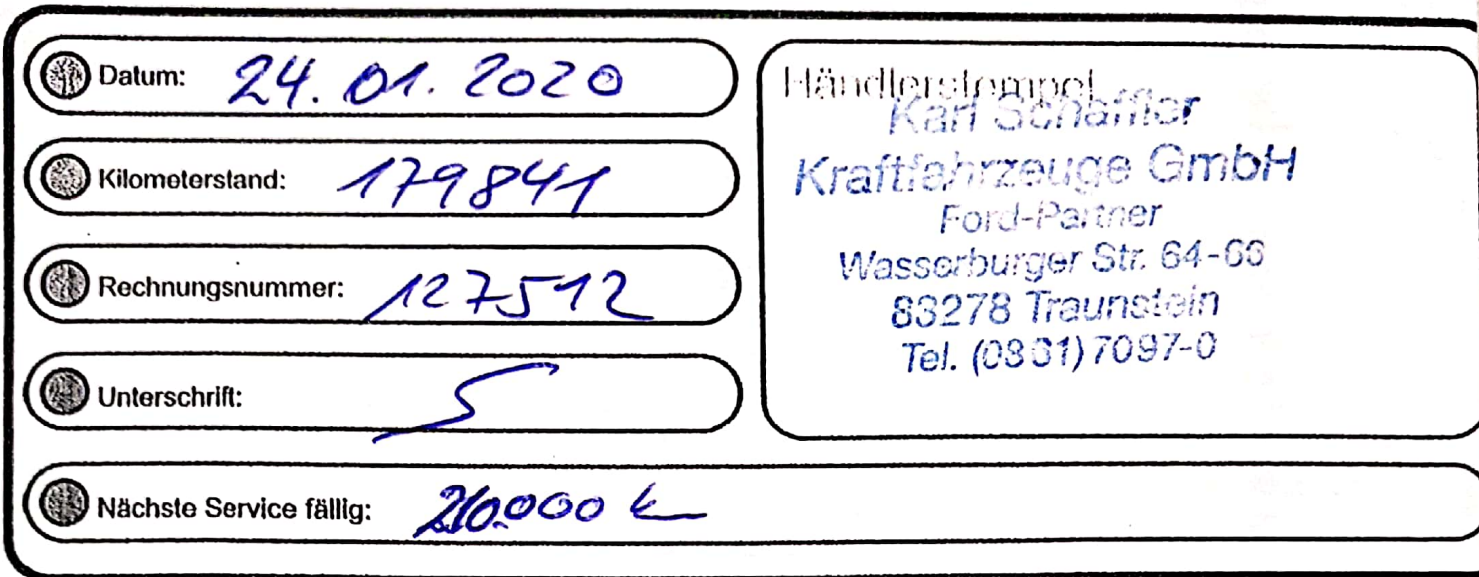 Datum: 24.01.2020
Kilometerstand: 179841
Rechnungsnummer: 127512
Unterschrift:
Nächste Service fällig: 210.000 k
Händlerstempel
Karl Schaffler
Kraftfahrzeuge GmbH
Ford-Partner
Wasserburger Str. 64-66
83278 Traunstein
Tel. (0861) 7097-0